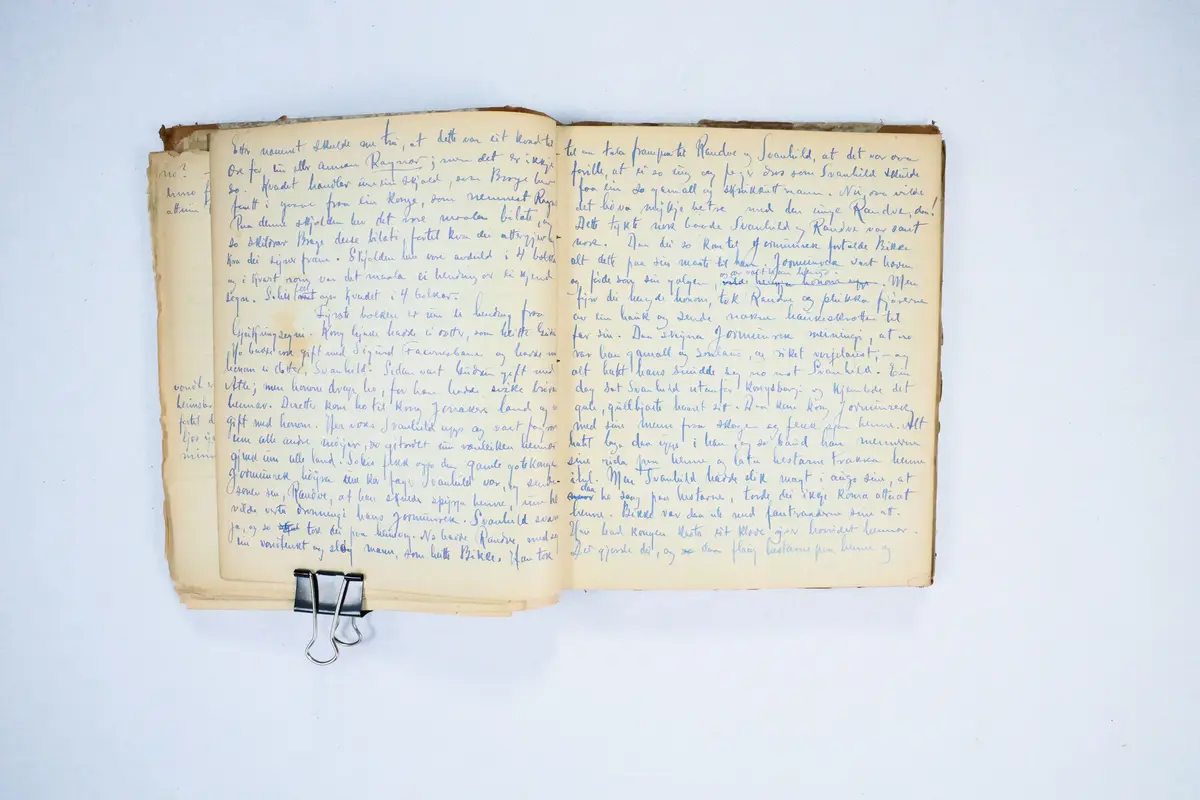 no?
Etter namnet skulde me tru, at dette var eit kvad til
øre for ein eller annan Ragnar; men det er ikkje
so. Kvadet handlar um ein skjold, som Brage hev
fenge i gaava fraa ein konge, som nemnest Ragn
Paa denne skjolden hev det vore maalat bilæte, og
so skildrar Brage desse bilæti, fortel kva dei
kva dei syner fram. Skjolden hev vore avdeild i 4 bolkar
og i kvart rom var det maala ei hending or ei kjend
segn. So hev og kvadet 4 bolkar.
Fyrste bolken er um ei hending fraa
Gjukungsegni. Kong Gjuke hadde ei dotter, som heitte
Ho hadde vore gift med Sigurd Faavnesbane og hadde m
honom ei dotter, Svanhild. Sidan vart Gudrun gift med
Atle; men honom drap ho, for han hadde svike brørne
hennar. Deretter kom ho til kong Jonakers land og v
gift med honom. Her voks Svanhild upp og vart fagrar
enn alle andre møyar, so gjetordet um vænleiken hennar
gjekk um alle land. So fekk den gamle gotekongen
Jormunrek høyra um kor fager Svanhild var, og sende
sonen sin, Randve, at han skulde spyrja henne, um ho
vilde verta dronning hans Jormunrek. Svanhild svara
ja, og so tok dei paa heimveg. No hadde Randve med seg
ein vondtenkt og sløg mann, som heitte Bikke. Han tok
til aa tala framfor Randve og Svanhild, at det var ovra
forille, at ei so ung og fager drós som Svanhild skulde
faa ein so gamall og skrukkutt mann. Nei, ho vilde
det høva mykje betre med den unge Randve, daa!
Dette tykte nok baade Svanhild og Randve var sant
nok. Daa dei so kom til Jormunrek fortalde Bikke
alt dette paa sin maate til han. Jormunrek vart harm
og baud son sin galgen, Men
fyrr dei hengde honom, tok Randve og plukka fjørerne
av ein hauk og sende nakne haukeskrotten til
far sin. Daa skyna Jormunrek meiningi, at no
var han gamall og sonlaus, og riket verjelaust, — og
alt hatet hans snudde seg no mot Svanhild. Ein
dag sat Svanhild utanfor kongsborgi og kjembde det
gule, gullbjarte haaret sitt. Daa kom kong Jormunrek
med sine menn fraa skogen og fekk sjaa henne. Alt
hatet loga daa upp i han, og so baud han mennerne
sine rida paa henne og lata hestarne trakka henne
ihel. Men Svanhild hadde slik magt i augo sine, at
daa ho saag paa hestarne, torde dei ikkje koma attaat
henne. Bikke var daa ute med fantraaderne sine att.
Han bad kongen kasta eit klæde yver hovudet hennar.
Det gjorde dei, og so daa flaug hestarne paa henne og